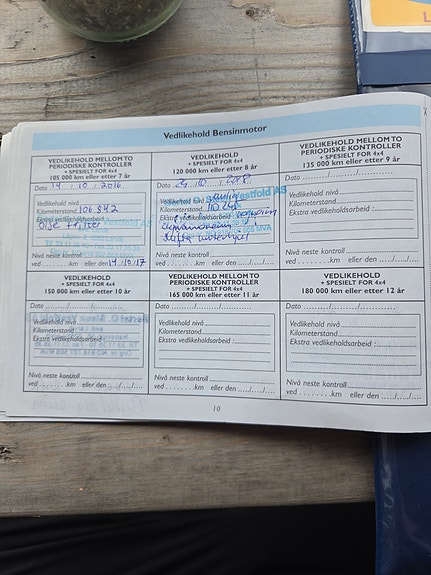 Vedlikehold Bensinmotor
VEDLIKEHOLD MELLOM TO
PERIODISKE KONTROLLER
+ SPESIELT FOR 4x4
105 000 km eller etter 7 år
Dato 14 / 10 / 2016
Vedlikehold nivå
Kilometerstand 106 842
Ekstra vedlikeholdsarbeid :
Olje + filter
Nivå neste kontroll
ved ........km eller den 14/10/17
VEDLIKEHOLD
+ SPESIELT FOR 4x4
120 000 km eller etter 8 år
Dato
Vestfold AS
Vedlikehold nivå
Kilometerstand
Ekstra vedlikeholdsarbeid
MVA
Nivå neste kontroll
ved ........km eller den ..../..../....
VEDLIKEHOLD MELLOM TO
PERIODISKE KONTROLLER
+ SPESIELT FOR 4x4
135 000 km eller etter 9 år
Dato ......../......../........
Vedlikehold nivå
Kilometerstand
Ekstra vedlikeholdsarbeid :
Nivå neste kontroll
ved ........km eller den ..../..../....
VEDLIKEHOLD
+ SPESIELT FOR 4x4
150 000 km eller etter 10 år
Dato ......../......../........
Vedlikehold nivå
Kilometerstand
Ekstra vedlikeholdsarbeid :
Nivå neste kontroll
ved ........km eller den ..../..../....
VEDLIKEHOLD MELLOM TO
PERIODISKE KONTROLLER
+ SPESIELT FOR 4x4
165 000 km eller etter 11 år
Dato ......../......../........
Vedlikehold nivå
Kilometerstand
Ekstra vedlikeholdsarbeid :
Nivå neste kontroll
ved ........km eller den ..../..../....
VEDLIKEHOLD
+ SPESIELT FOR 4x4
180 000 km eller etter 12 år
Dato ......../......../........
Vedlikehold nivå
Kilometerstand
Ekstra vedlikeholdsarbeid :
Nivå neste kontroll
ved ........km eller den ..../..../....
10